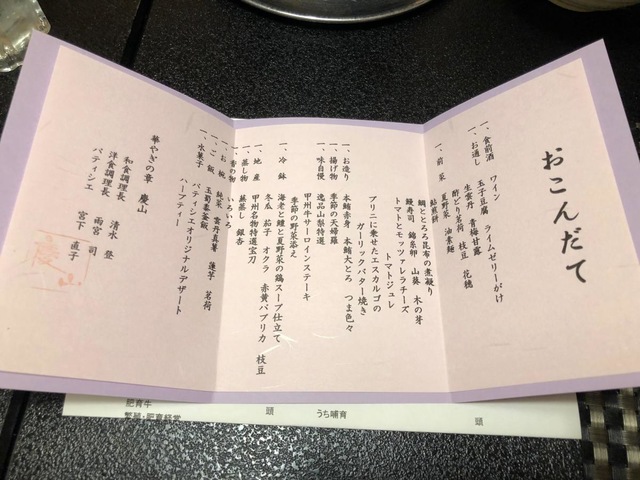 おこんだて
一、食前酒 ワイン
一、お通し 玉子豆腐 ライムゼリーがけ
生雲丹 青梅甘露
酢どり茗荷 枝豆 花穂
一、前菜 夏野菜 油素麺
鮎煎餅
鯛ととろろ昆布の煮凝り
鰻寿司 錦糸卵 山葵 木の芽
トマトとモッツァレラチーズ
トマトジュレ
ブリニに乗せたエスカルゴの
ガーリックバター焼き
一、お造り 本鮪赤身 本鮪大とろ つま色々
一、揚げ物 季節の天婦羅
一、味自慢 逸品山梨特選
甲州牛サーロインステーキ
季節の野菜添え
一、冷鉢 海老と鱧 夏野菜の鶏スープ仕立て
冬瓜 茄子 オクラ 赤黄パプリカ 枝豆
一、地産 甲州名物特選宝刀
一、蒸し物 蕪蒸し 銀杏
一、香の物 いろいろ
一、お椀 純菜 雲丹真薯 蓮芋 茗荷
一、ご飯 玉蜀黍釜飯
一、水菓子 パティシエオリジナルデザート
ハーブティー
華やぎの章 慶山
和食調理長 清水 登
洋食調理長 雨宮 司
パティシエ 宮下 直子
慶山
肥育牛 頭 うち哺育 頭
繁殖・肥育経営